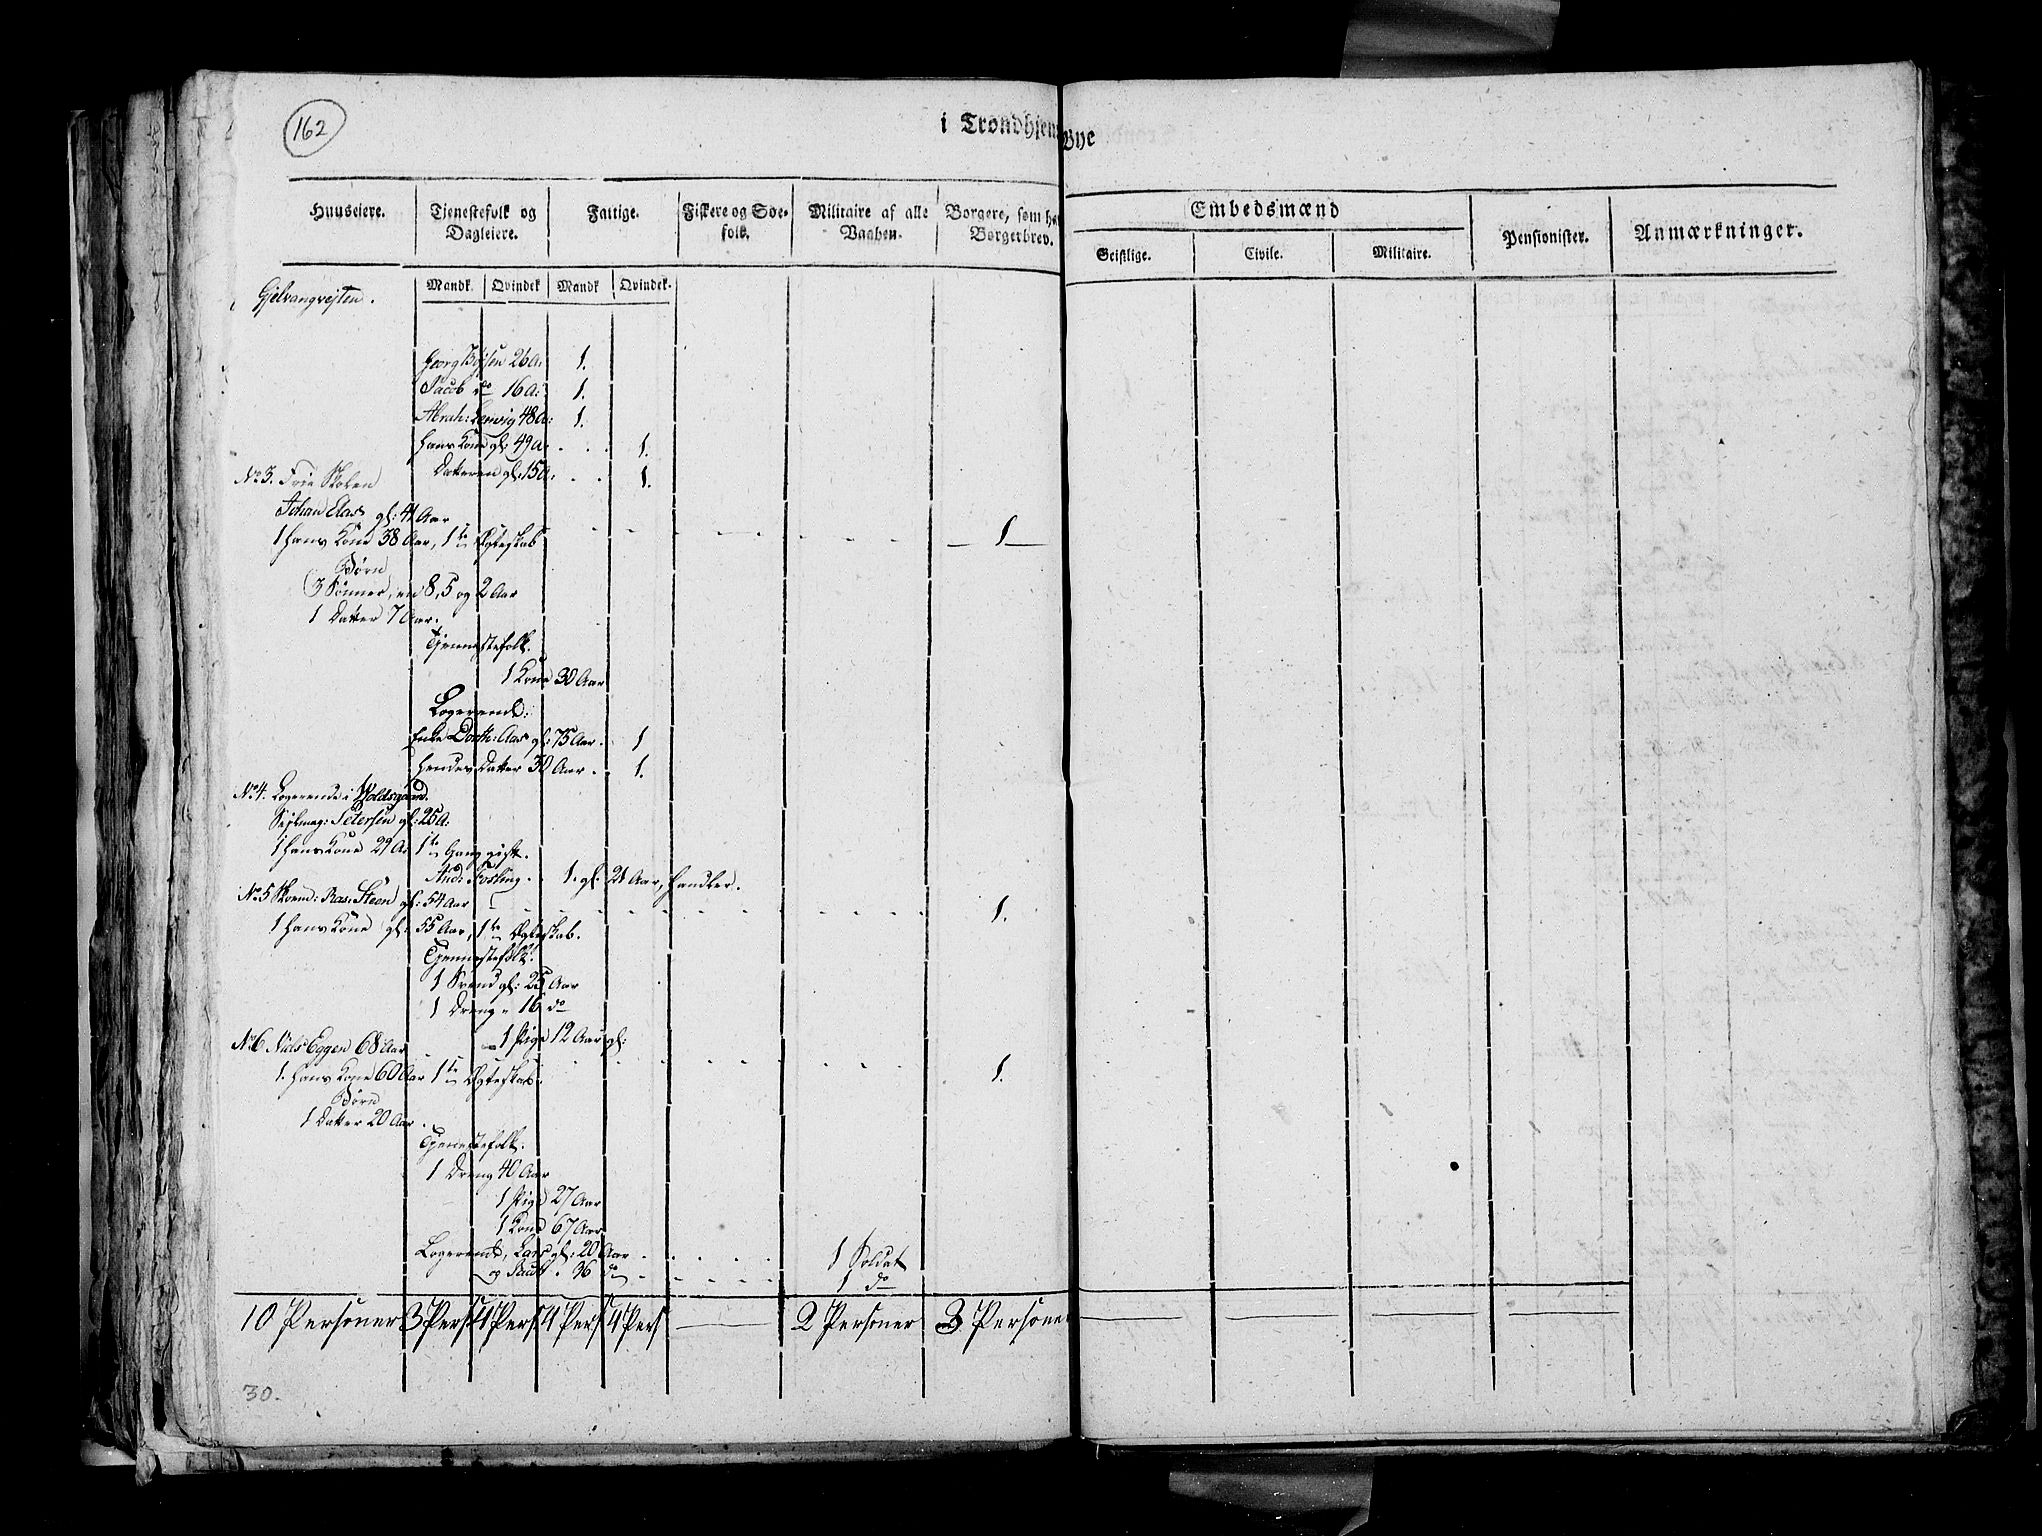 162
i Trondhjems Bye
Huuseiere.
Tjenestefolk og Dagleiere.
Fattige.
Fiskere og Søefolk.
Militaire af alle Vaaben.
Borgere, som har Borgerbrev.
Embedsmænd
Geistlige.
Civile.
Militaire.
Pensionister.
Anmærkninger.
Mandk. Qvindek. Mandk. Qvindek.
Gjelvangvejten.
Georg Bøysen 26 A: 1.
Jacob do 16 A: 1.
Abrah: Lemvig 48 A: 1.
hans Kone gl: 49 A. . . . 1.
Datteren gl: 15 A. . . 1.
No 3. Frie Skolen
Johan Aas gl: 41 Aar
1 hans Kone 38 Aar, 1te Ægteskab - - - - - - 1
Børn
3 Sønner, en 8, 5 og 2 Aar
1 Datter 7 Aar.
Tjennestefolk.
1 Kone 30 Aar
Logerende:
Enke Dorth: Aas gl: 75 Aar. 1
hendes Datter 30 Aar. . 1.
No 4. Logerende i Woldsgaard.
Petersen gl: 25 A.
1 hans Kone 29 A. 1te Gang gift.
And: Fosling. . 1. gl. 21 Aar, handler.
No 5 Skoem: Ras: Steen gl: 54 Aar - - - - - 1.
1 hans Kone gl. 55 Aar, 1te Ægteskab.
Tjennestefolk.
1 Svend gl: 25 Aar
1 Dreng " 16 do
1 Pige 12 Aar gl:
No 6 Niels Eggen 68 Aar
1. hans Kone 60 Aar 1te Ægteskab. - - - - 1.
Børn
1 Datter 20 Aar.
Tjenestefolk.
1 Dreng 40 Aar
1 Pige 27 Aar
1 Kone 67 Aar
Logerende, Lars gl: 20 Aar . . . . 1 Soldat
og Jacob . 36 do - - - - 1 do
10 Personer 3 Pers 4 Pers 4 Pers 4 Pers — 2 Personer 3 Personer — — — —
30.